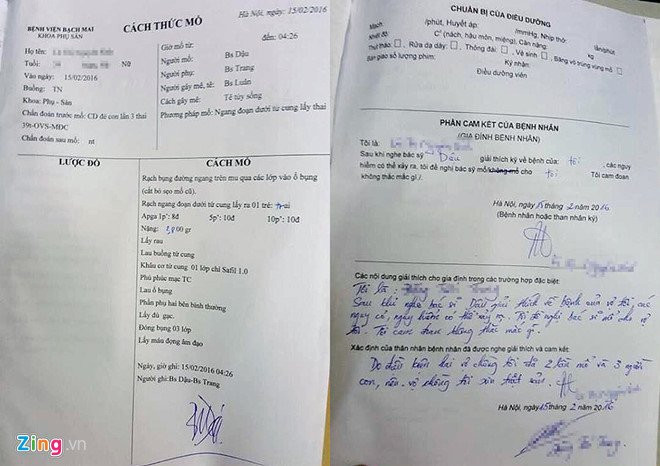 BỆNH VIỆN BẠCH MAI
KHOA PHỤ SẢN
CÁCH THỨC MỔ
Hà Nội, ngày: 15/02/2016
đến: 04:26
Họ tên:
Tuổi: Nữ
Vào ngày: 15/02/2016
Buồng: TN
Khoa: Phụ - Sản
Chẩn đoán trước mổ: CD đẻ con lần 3 thai
39t-OVS-MDC
Chẩn đoán sau mổ: nt
Giờ mổ từ:
Người mổ: Bs Dậu
Người phụ: Bs Trang
Người gây mê, tê: Bs Luân
Cách gây mê: Tê tủy sống
Phương pháp mổ: Ngang đoạn dưới tử cung lấy thai
LƯỢC ĐỒ
CÁCH MỔ
Rạch bụng đường ngang trên mu qua các lớp vào ổ bụng
(cắt bỏ sẹo mổ cũ).
Rạch ngang đoạn dưới tử cung lấy ra 01 trẻ: trai
Apga 1p': 8đ 5p': 10đ 10p': 10đ
Nặng: gr
Lấy rau
Lau buồng tử cung
Khâu cơ tử cung 01 lớp chỉ Safil 1.0
Phủ phúc mạc TC
Lau ổ bụng
Phần phụ hai bên bình thường
Lấy đủ gạc.
Đóng bụng 03 lớp
Lấy máu đọng âm đạo
Ngày, giờ ghi: 15/02/2016 04:26
Người ghi: Bs Dậu-Bs Trang
Zing.vn
CHUẨN BỊ CỦA ĐIỀU DƯỠNG
Mạch: /phút, Huyết áp: /mmHg, Nhịp thở: lần/phút
Nhiệt độ: C° (nách, hậu môn, miệng), Cân nặng: kg
Thụt tháo: , Rửa dạ dày: , Thông đái: , Vệ sinh , Băng vô trùng vùng mổ
Bàn giao số lượng phim: Ký nhận:
Điều dưỡng viên
PHẦN CAM KẾT CỦA BỆNH NHÂN
(GIA ĐÌNH BỆNH NHÂN)
Tôi là:
Sau khi nghe bác sỹ Dậu giải thích kỹ về bệnh của: tôi, các nguy
hiểm có thể xảy ra, tôi đề nghị bác sỹ mổ không mổ cho tôi Tôi cam đoan
không thắc mắc gì /.
Hà Nội, ngày 15 tháng 2 năm 2016
(Bệnh nhân hoặc thân nhân ký)
Các nội dung giải thích cho gia đình trong các trường hợp đặc biệt:
Tôi là:
Sau khi nghe bác sĩ Dậu giải thích về bệnh của vợ tôi, các
nguy cơ, nguy hiểm có thể xảy ra. Tôi đề nghị bác sĩ mổ cho vợ
tôi. Tôi cam đoan không thắc mắc gì.
Xác định của thân nhân bệnh nhân đã được nghe giải thích và cam kết:
Do điều kiện hai vợ chồng tôi đã 2 lần mổ và 3 người
con, nên vợ chồng tôi xin triệt sản.
Hà Nội, ngày 15 tháng 2 năm 2016
Zing.vn